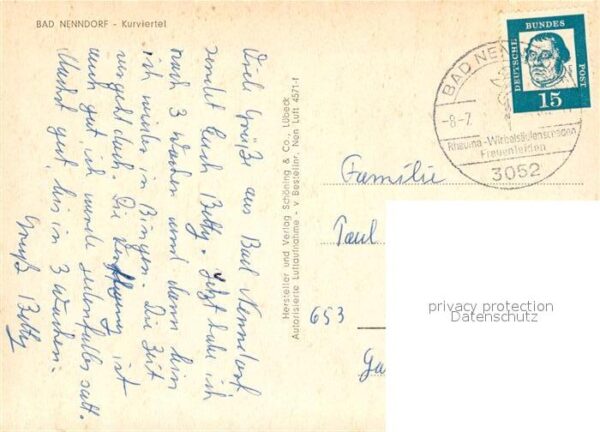 BAD NENNDORF - Kurviertel
Viele Grüße aus Bad Nenndorf
sendet Euch Betty. Jetzt habe ich
noch 3 Wochen und dann bin
ich wieder in Bingen. Die Zeit
vergeht doch. Die ist
auch gut, ich werde jedenfalls satt.
Machst gut, bis in 3 Wochen.
Gruß Betty
Hersteller und Verlag Schöning & Co., Lübeck
Autorisierte Luftaufnahme - v Bestellnr. Nen Luft 4571-f
DEUTSCHE
BUNDES
POST
15
BAD NEN
-8.-7.
Rheuma-Wirbelsäulenschäden
Frauenleiden
3052
Familie
Paul
653
Ga
privacy protection
Datenschutz